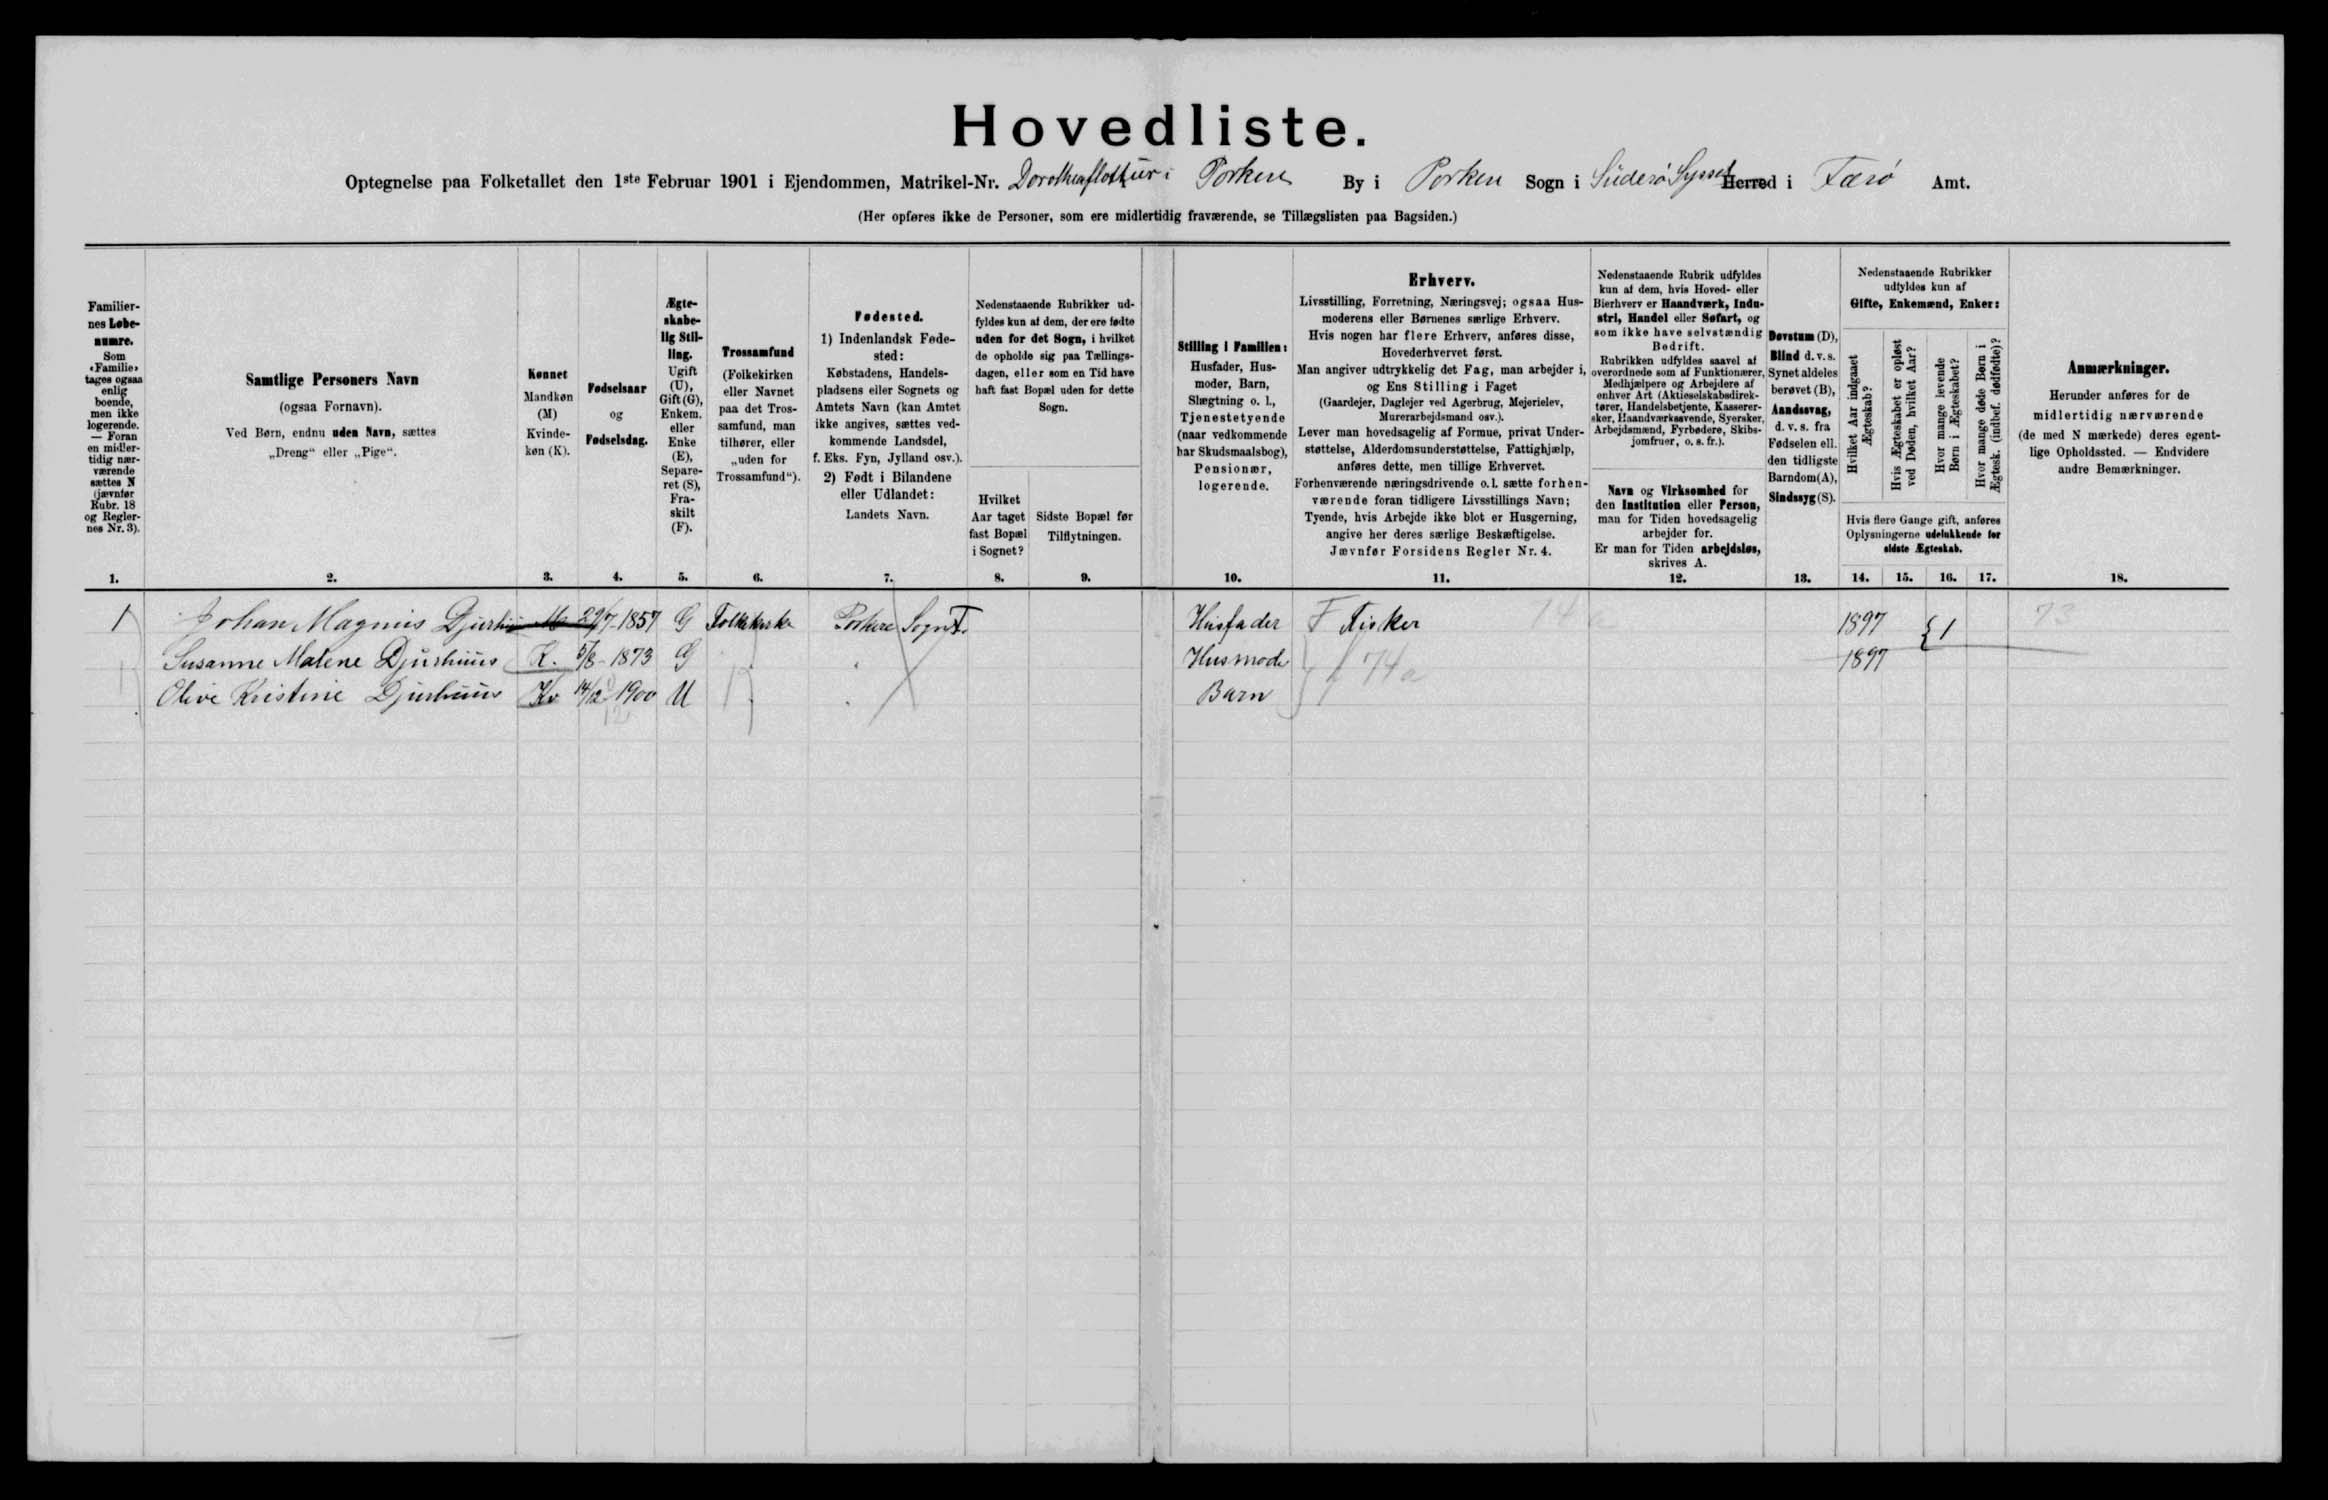 Hovedliste.
Optegnelse paa Folketallet den 1ste Februar 1901 i Ejendommen, Matrikel-Nr. i Porkere By i Porkere Sogn i Süderø Syssel Herred i Færø Amt.
(Her opføres ikke de Personer, som ere midlertidig fraværende, se Tillægslisten paa Bagsiden.)
Familier-
nes Løbe-
numre.
Som
«Familie»
tages ogsaa
enlig
boende,
men ikke
logerende.
— Foran
en midler-
tidig nær-
værende
sættes N
(jævnfør
Rubr. 18
og Regler-
nes Nr. 3).
1.
Samtlige Personers Navn
(ogsaa Fornavn).
Ved Børn, endnu uden Navn, sættes
„Dreng“ eller „Pige“.
2.
Kønnet
Mandkøn
(M)
Kvinde-
køn (K).
3.
Fødselsaar
og
Fødselsdag.
4.
Ægte-
skabe-
lig Stil-
ling.
Ugift
(U),
Gift (G),
Enkem.
eller
Enke
(E),
Separe-
ret (S),
Fra-
skilt
(F).
5.
Trossamfund
(Folkekirken
eller Navnet
paa det Tros-
samfund, man
tilhører, eller
„uden for
Trossamfund“).
6.
Fødested.
1) Indenlandsk Føde-
sted:
Købstadens, Handels-
pladsens eller Sognets og
Amtets Navn (kan Amtet
ikke angives, sættes ved-
kommende Landsdel,
f. Eks. Fyn, Jylland osv.).
2) Født i Bilandene
eller Udlandet:
Landets Navn.
7.
Nedenstaaende Rubrikker ud-
fyldes kun af dem, der ere fødte
uden for det Sogn, i hvilket
de opholde sig paa Tællings-
dagen, eller som en Tid have
haft fast Bopæl uden for dette
Sogn.
Hvilket
Aar taget
fast Bopæl
i Sognet?
8.
Sidste Bopæl før
Tilflytningen.
9.
Stilling i Familien:
Husfader, Hus-
moder, Barn,
Slægtning o. l.,
Tjenestetyende
(naar vedkommende
har Skudsmaalsbog),
Pensionær,
logerende.
10.
Erhverv.
Livsstilling, Forretning, Næringsvej; ogsaa Hus-
moderens eller Børnenes særlige Erhverv.
Hvis nogen har flere Erhverv, anføres disse,
Hovederhvervet først.
Man angiver udtrykkelig det Fag, man arbejder i,
og Ens Stilling i Faget
(Gaardejer, Daglejer ved Agerbrug, Mejerielev,
Murerarbejdsmand osv.).
Lever man hovedsagelig af Formue, privat Under-
støttelse, Alderdomsunderstøttelse, Fattighjælp,
anføres dette, men tillige Erhvervet.
Forhenværende næringsdrivende o. l. sætte forhen-
værende foran tidligere Livsstillings Navn;
Tyende, hvis Arbejde ikke blot er Husgerning,
angive her deres særlige Beskæftigelse.
Jævnfør Forsidens Regler Nr. 4.
11.
Nedenstaaende Rubrik udfyldes
kun af dem, hvis Hoved- eller
Bierhverv er Haandværk, Indu-
stri, Handel eller Søfart, og
som ikke have selvstændig
Bedrift.
Rubrikken udfyldes saavel af
overordnede som af Funktionærer,
Medhjælpere og Arbejdere af
enhver Art (Aktieselskabsdirek-
tører, Handelsbetjente, Kasserer-
sker, Haandværkssvende, Syersker,
Arbejdsmænd, Fyrbødere, Skibs-
jomfruer, o. s. fr.).
Navn og Virksomhed for
den Institution eller Person,
man for Tiden hovedsagelig
arbejder for.
Er man for Tiden arbejdsløs,
skrives A.
12.
Døvstum (D),
Blind d. v. s.
Synet aldeles
berøvet (B),
Aandssvag,
d. v. s. fra
Fødselen ell.
den tidligste
Barndom (A),
Sindssyg (S).
13.
Nedenstaaende Rubrikker
udfyldes kun af
Gifte, Enkemænd, Enker:
Hvilket Aar indgaaet
Ægteskab?
Hvis Ægteskabet er opløst
ved Døden, hvilket Aar?
Hvor mange levende
Børn i Ægteskabet?
Hvor mange døde Børn i
Ægtesk. (indbef. dødfødte)?
Hvis flere Gange gift, anføres
Oplysningerne udelukkende for
sidste Ægteskab.
14. 15. 16. 17.
Anmærkninger.
Herunder anføres for de
midlertidig nærværende
(de med N mærkede) deres egent-
lige Opholdssted. — Endvidere
andre Bemærkninger.
18.
1 Johan Magnus Djurhuus M 29/7-1857 G Folkekirke Porkere Sogn F. Husfader F Fisker 74 a 1897 {1 73
Susanne Malene Djurhuus K. 5/8-1873 G Husmoder 1897
Olive Kristine Djurhuus Kv 14/12 1900 U Barn } f 74 a
12